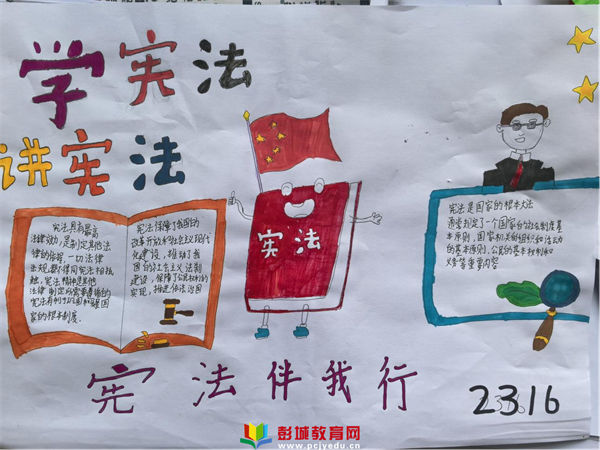 学宪法
讲宪法
宪法具有最高
法律效力,是制定其他法
律的依据,一切法律
法规都不得同宪法相抵
触,宪法精神是其他
法律
宪法
国
家的根本制度.
宪法保障了我国的
改革开放和社会主义现代
化建设,推动了我
国的社会主义法制
建设,
实现,推进依法治国
宪法
宪法是国家的根本大法
通常规定了一个国家的社会制度基
本原则,国家机关的组织和活动
的基本原则,公民的基本权利和
义务等重要内容
宪法伴我行
2316
彭城教育网
www.pcjyedu.cn